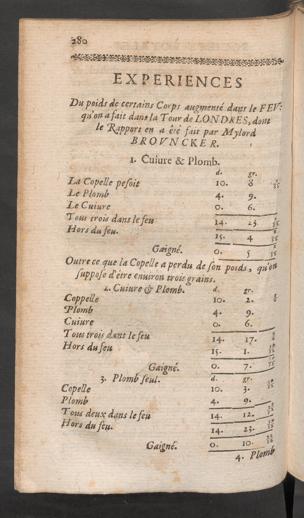 280
EXPERIENCES
Du poids de certains Corps augmenté dans le FEV:
qu'on a fait dans la Tour de LONDRES, dont
le Rapport en a été fait par Mylord
BROVNCKER.
1. Cuiure & Plomb.
d. gr.
La Copelle pesoit 10. 8
Le Plomb 4. 9.
Le Cuiure 0. 6.
Tous trois dans le feu 14. 23
Hors du feu. 15. 4
Gaigné. 0. 5
Outre ce que la Copelle a perdu de son poids, qu'on
suppose d'être enuiron trois grains.
2. Cuiure & Plomb. d. gr.
Coppelle 10. 2.
Plomb 4. 9.
Cuiure 0. 6.
Tous trois dans le feu 14. 17.
Hors du feu 15. 1.
Gaigné. 0. 7.
3. Plomb seul. d. gr.
Copelle 10. 3.
Plomb 4. 9.
Tous deux dans le feu 14. 12.
Hors du feu. 14. 23.
Gaigné. 0. 10.
4. Plomb